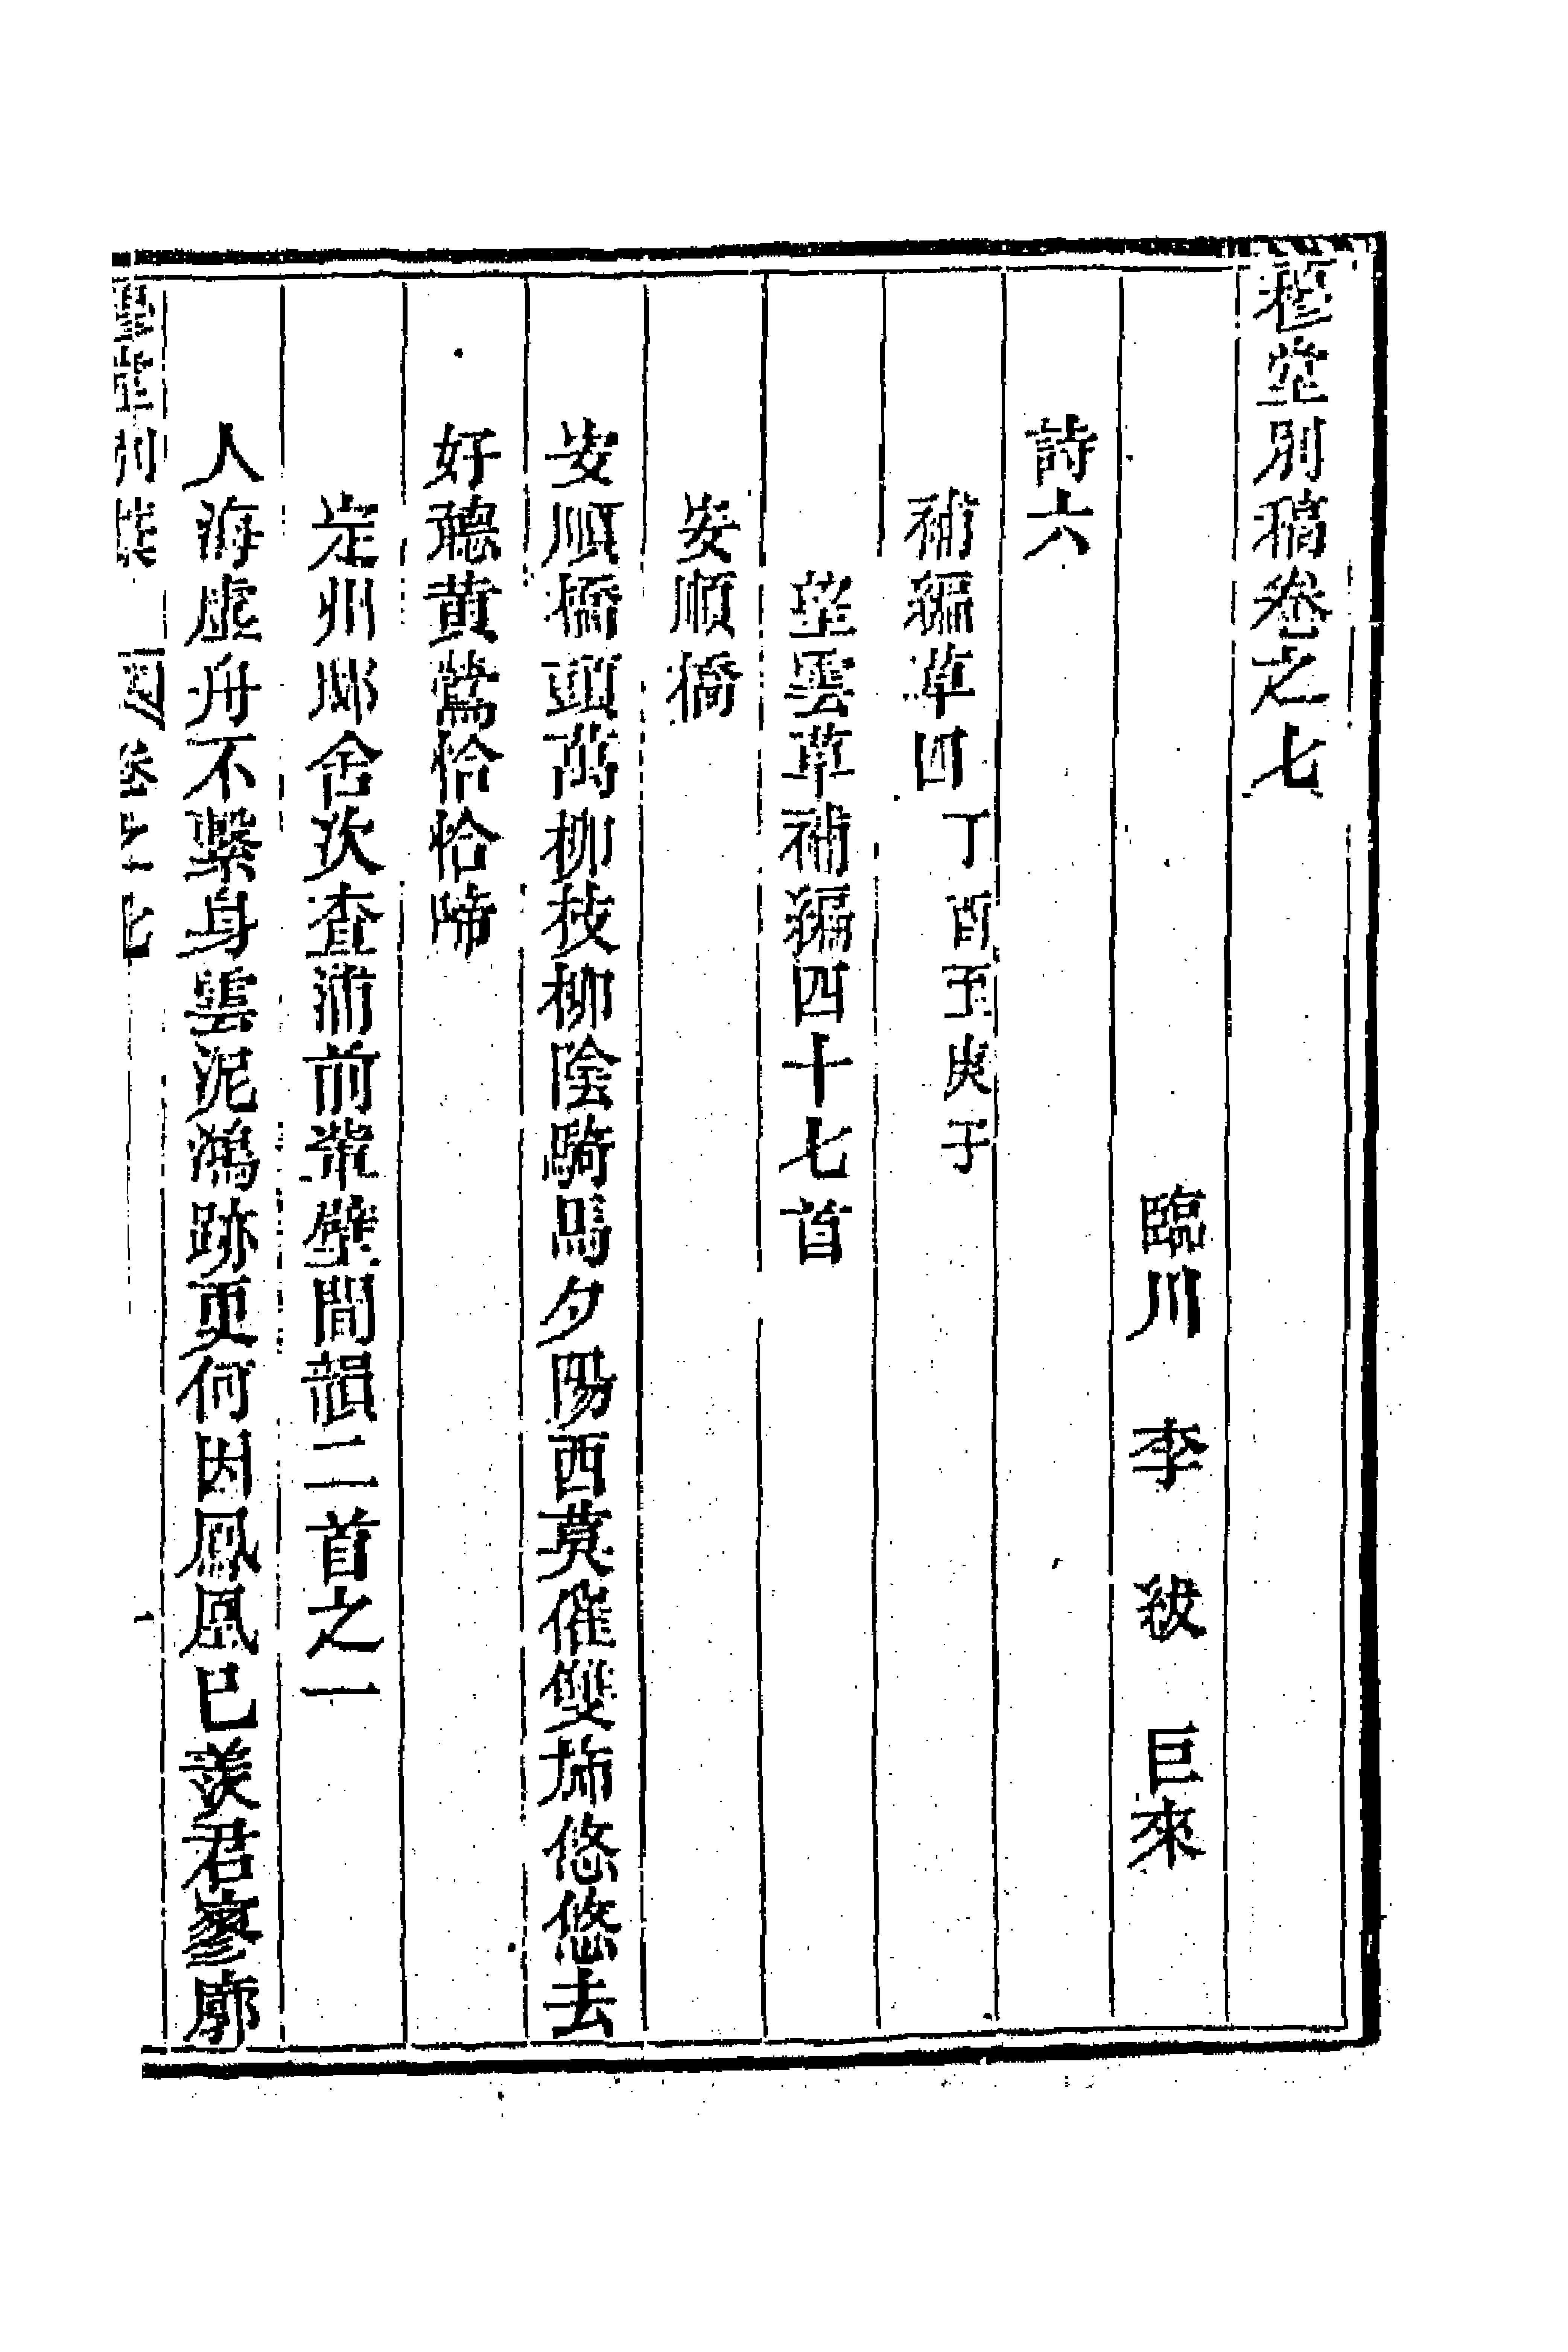 穆堂別稿卷之七
臨川 李 紱 巨來
詩六
補編草四丁酉至庚子
望雲草補編四十七首
安順橋
安順橋頭萬柳枝柳陰騎馬夕陽西莫催雙斾悠悠去
好聽黃鶯恰恰啼
定州邸舍次查浦前輩壁間韻二首之一
人海虛舟不繫身雲泥鴻跡更何因鳳凰已羨君寥廓
卷之七